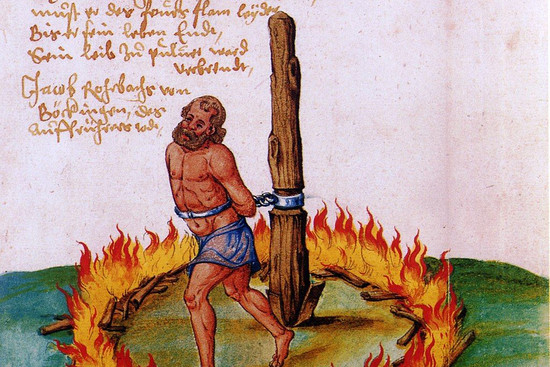 must er des Feurs flam leyden
Bis er sein leben Endt,
Sein leib Zu pulver ward
verbrendt,
Jacob Rohrbachs von
Böckingen, des
Auffrührers